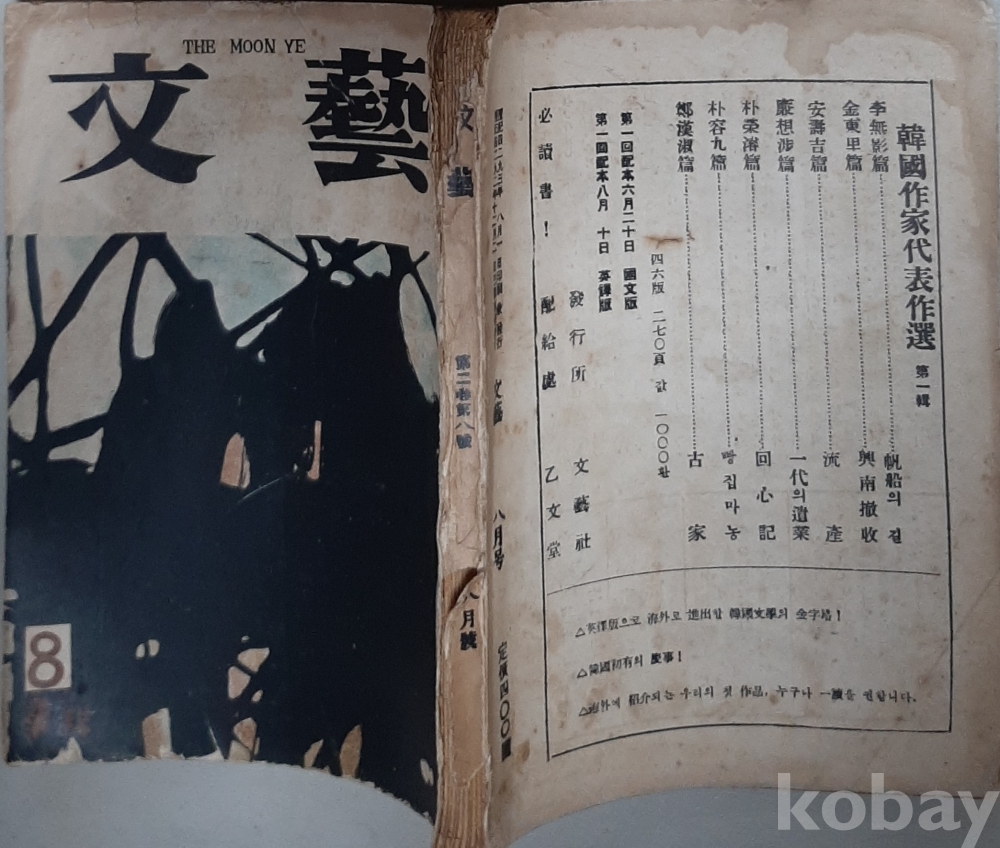 THE MOON YE
文藝
8
文藝
第二卷第八號
八月號
文藝
八月号
定價四〇〇圓
韓國作家代表作選 第一輯
李無影篇 帆船의 길
金東里篇 興南撤收
安壽吉篇 流產
廉想涉篇 一代의遺業
朴榮濬篇 回心記
朴容九篇 빵집마농
鄭漢淑篇 古家
四六版 二七〇頁 값 一〇〇〇환
第一回配本六月二十日 國文版
第一回配本八月 十日 英譯版
發行所 文藝社
必讀書! 配給處 乙文堂
△英譯版으로 海外로 進出할 韓國文學의 金字塔!
△韓國初有의 慶事!
△海外에 紹介되는 우리의 첫 作品, 누구나 一讀을 권합니다.
kobay